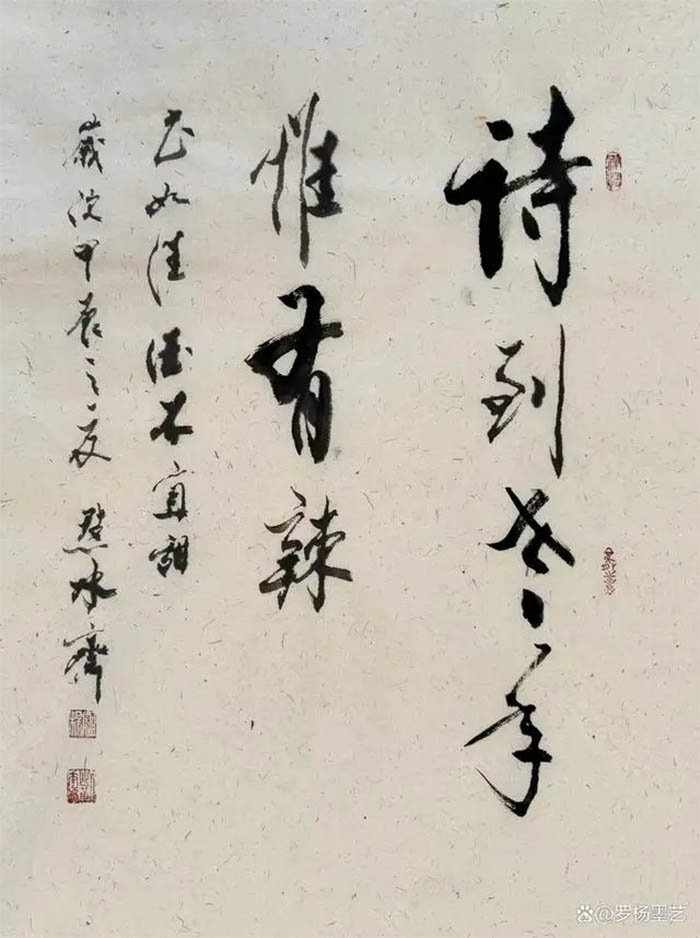 诗到老年
惟有辣
书如佳酒不宜甜
嵗次甲辰之夏 齋
@罗杨墨艺